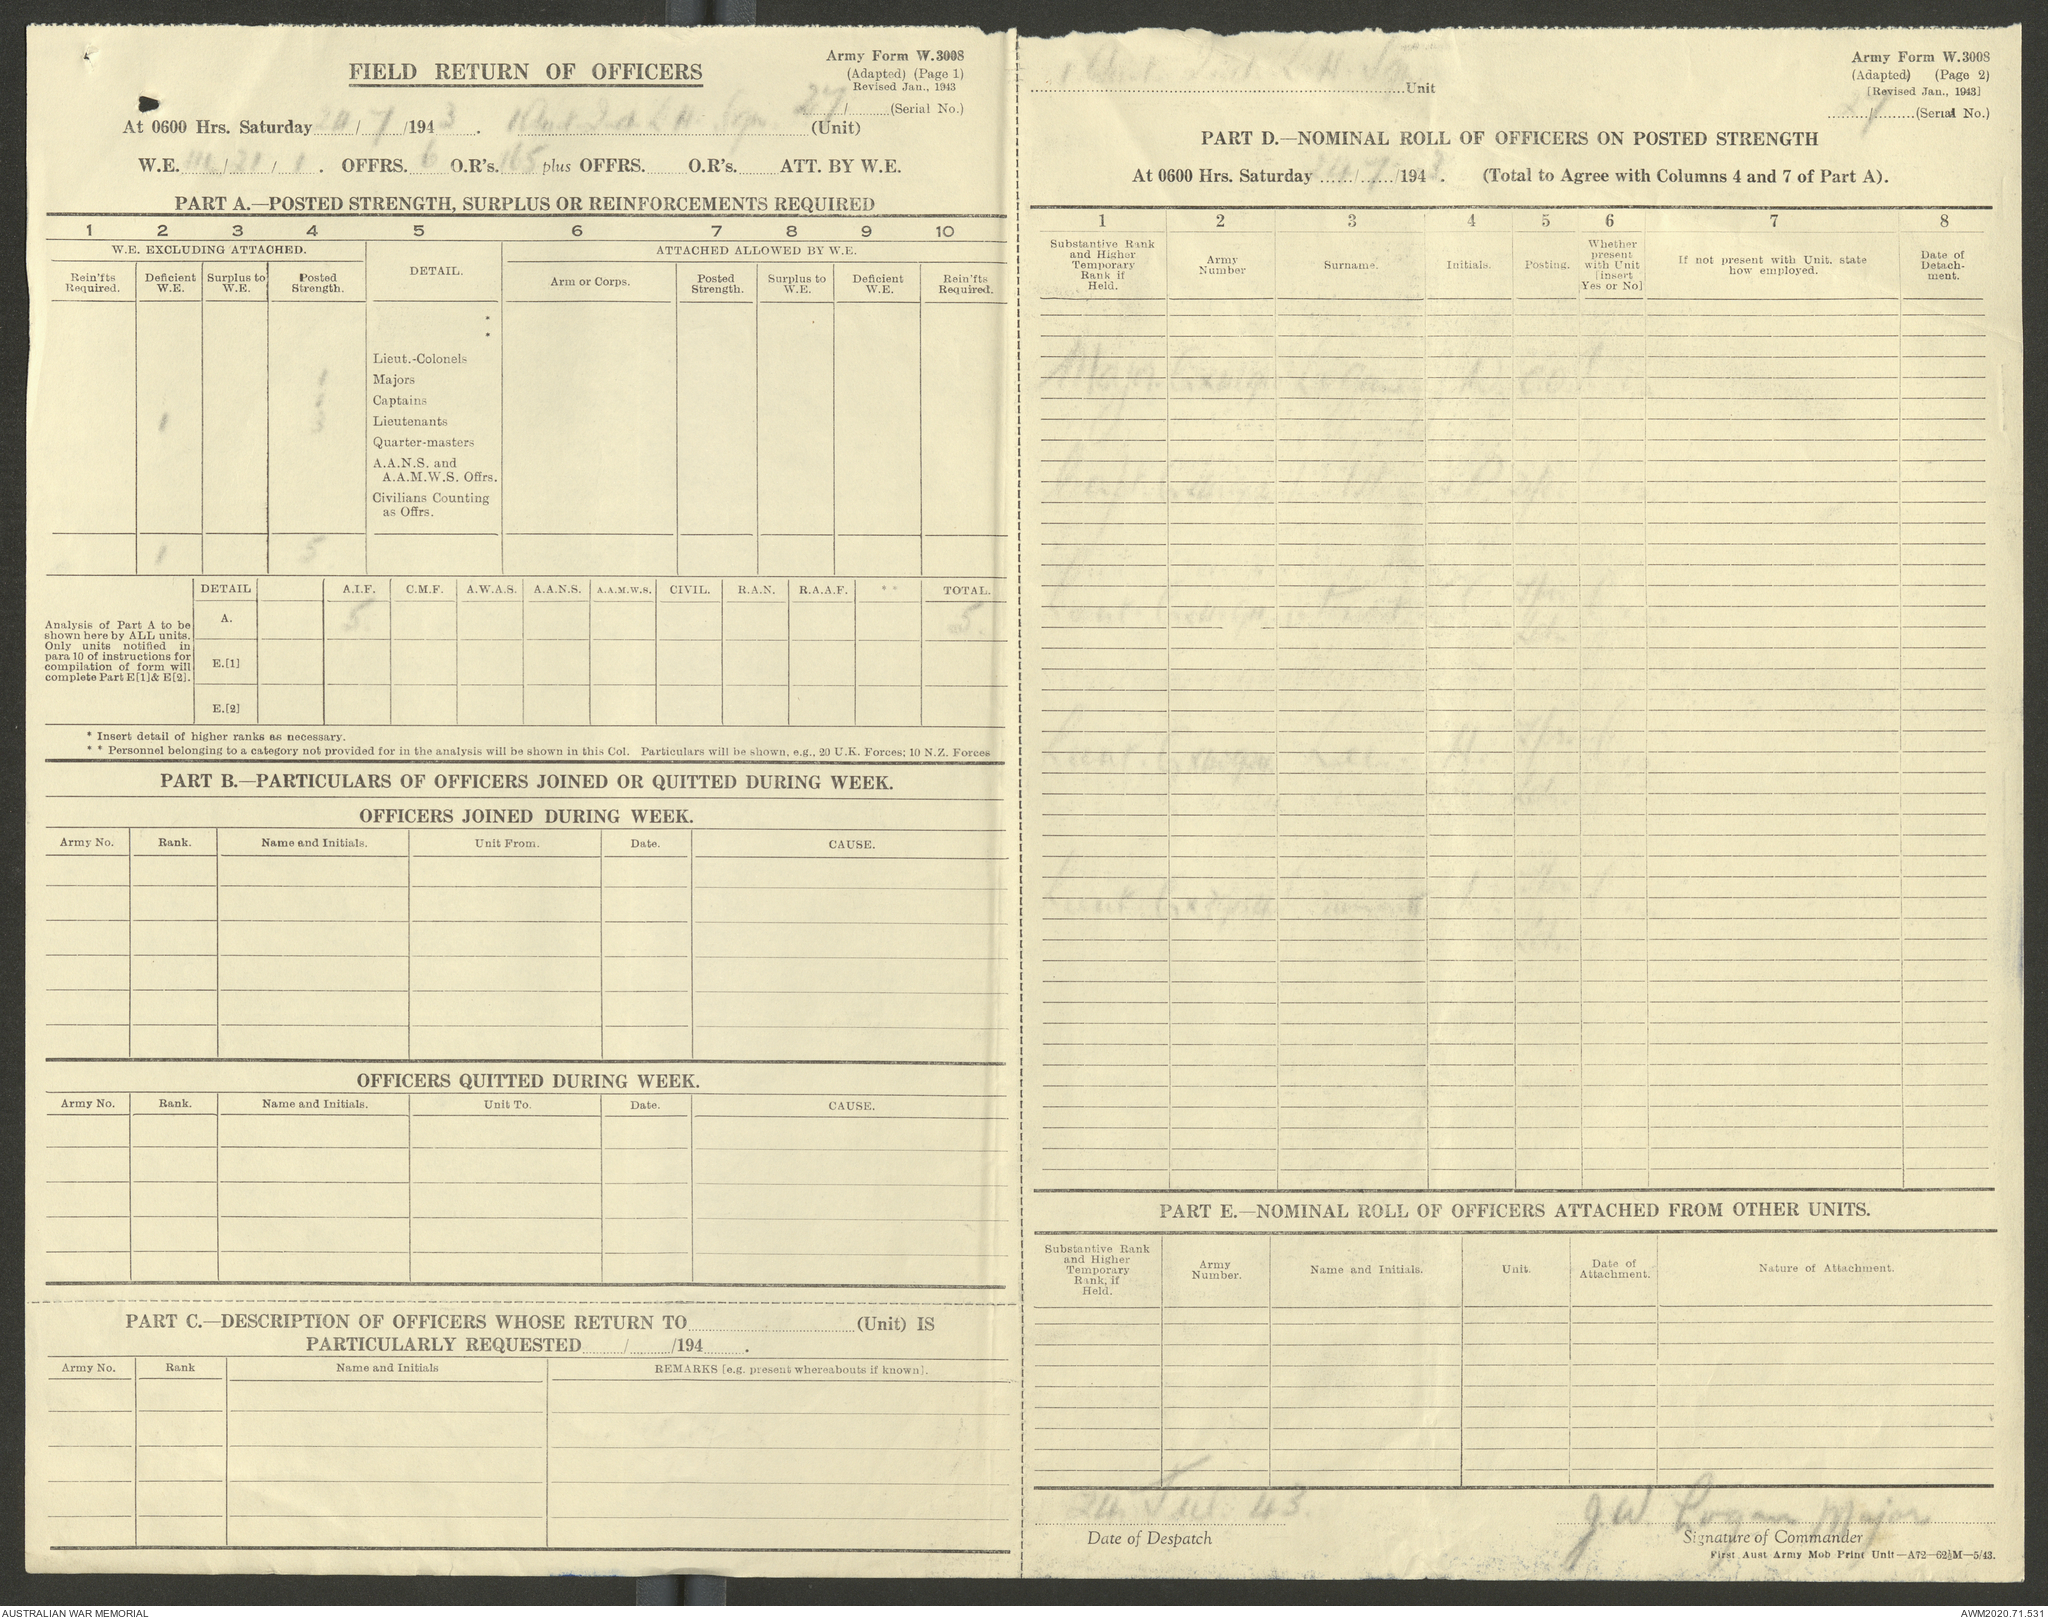 FIELD RETURN OF OFFICERS
Army Form W.3008
(Adapted) (Page 1)
Revised Jan., 1943
27/ (Serial No.)
At 0600 Hrs. Saturday 24/7/1943. (Unit)
W.E. / 21 / 1. OFFRS. 6 O.R's. 165 plus OFFRS. O.R's. ATT. BY W.E.
PART A.—POSTED STRENGTH, SURPLUS OR REINFORCEMENTS REQUIRED
1 2 3 4 5 6 7 8 9 10
W.E. EXCLUDING ATTACHED. DETAIL. ATTACHED ALLOWED BY W.E.
Rein'fts Required. Deficient W.E. Surplus to W.E. Posted Strength. Arm or Corps. Posted Strength. Surplus to W.E. Deficient W.E. Rein'fts Required.
*
*
Lieut.-Colonels
1 Majors
1 Captains
1 3 Lieutenants
Quarter-masters
A.A.N.S. and
A.A.M.W.S. Offrs.
Civilians Counting
as Offrs.
1 5
DETAIL A.I.F. C.M.F. A.W.A.S. A.A.N.S. A.A.M.W.S. CIVIL. R.A.N. R.A.A.F. ** TOTAL.
A. 5 5.
Analysis of Part A to be
shown here by ALL units.
Only units notified in
para 10 of instructions for
compilation of form will
complete Part E[1] & E[2].
E.[1]
E.[2]
* Insert detail of higher ranks as necessary.
* * Personnel belonging to a category not provided for in the analysis will be shown in this Col. Particulars will be shown, e.g., 20 U.K. Forces; 10 N.Z. Forces
PART B.—PARTICULARS OF OFFICERS JOINED OR QUITTED DURING WEEK.
OFFICERS JOINED DURING WEEK.
Army No. Rank. Name and Initials. Unit From. Date. CAUSE.
OFFICERS QUITTED DURING WEEK.
Army No. Rank. Name and Initials. Unit To. Date. CAUSE.
PART C.—DESCRIPTION OF OFFICERS WHOSE RETURN TO (Unit) IS
PARTICULARLY REQUESTED / /194 .
Army No. Rank Name and Initials REMARKS [e.g. present whereabouts if known].
Army Form W.3008
(Adapted) (Page 2)
[Revised Jan., 1943]
Unit
27/ (Serial No.)
PART D.—NOMINAL ROLL OF OFFICERS ON POSTED STRENGTH
At 0600 Hrs. Saturday 24/7/1943. (Total to Agree with Columns 4 and 7 of Part A).
1 2 3 4 5 6 7 8
Substantive Rank and Higher Temporary Rank if Held. Army Number Surname. Initials. Posting. Whether present with Unit [insert Yes or No] If not present with Unit. state how employed. Date of Detachment.
Major
Capt
Lieut
Lieut.
Lieut.
PART E.—NOMINAL ROLL OF OFFICERS ATTACHED FROM OTHER UNITS.
Substantive Rank and Higher Temporary Rank, if Held. Army Number. Name and Initials. Unit. Date of Attachment. Nature of Attachment.
24 Jul. 43.
Date of Despatch
J.W. Logan Major
Signature of Commander
First Aust Army Mob Print Unit—A72—62½M—5/43.
AUSTRALIAN WAR MEMORIAL
AWM2020.71.531